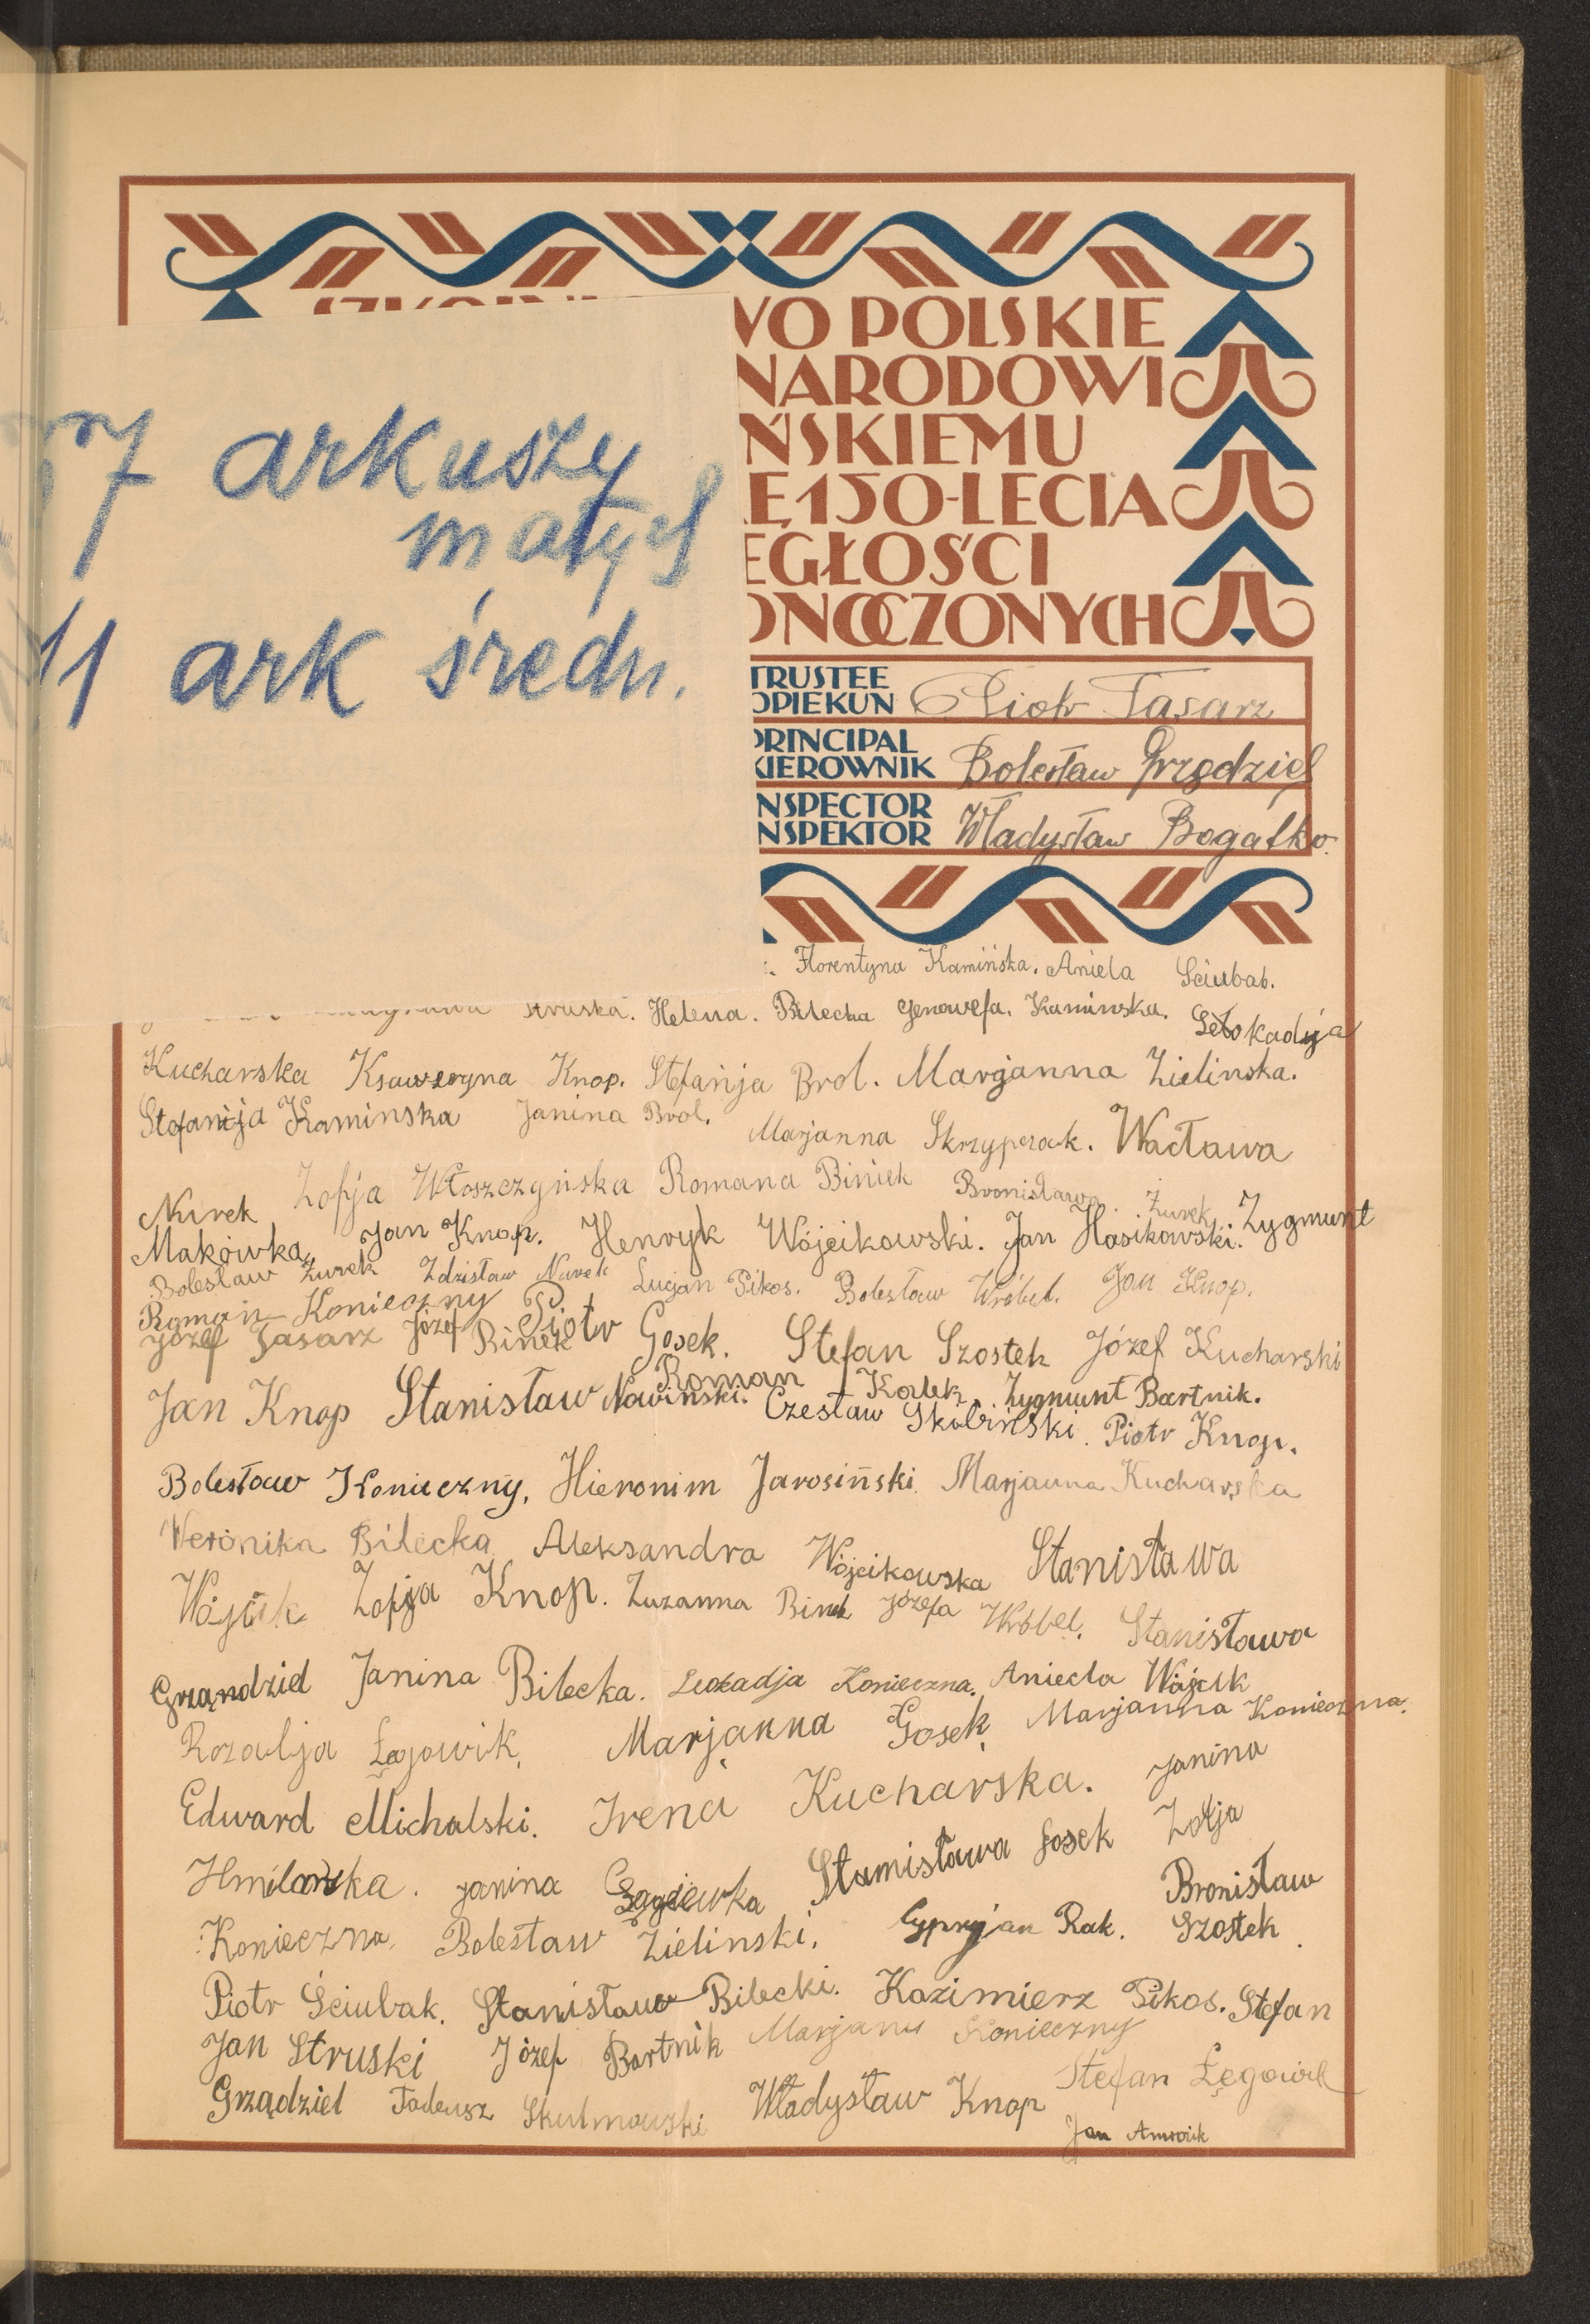 WO POLSKIE
NARODOWI
ŃSKIEMU
LE 150-LECIA
EGŁOŚCI
ONOCZONYCH
7 arkuszy
małych
11 ark średn.
TRUSTEE
OPIEKUN Piotr Tasarz
PRINCIPAL
KIEROWNIK Bolesław Grządziel
INSPECTOR
INSPEKTOR Władysław Bogatko.
Florentyna Kamińska. Aniela Sciubab.
Struska. Helena. Bilecka Genowefa. Kaminska.
Kucharska Ksaweryna Knop. Stefańja Brol. Marjanna Zielinska.
Stefanija Kaminska Janina Brol. Marjanna Skrzypczak. Wacława
Nurek Zofja Włoszczyńska Romana Biniek Bronisława Żurek Zygmunt
Makówka, Jan Knop. Henryk Wójcikowski. Jan Hasikowski.
Bolesław Żurek Zdzisław Nurek Lucjan Pikos. Bolesław Wróbel. Jan Knop.
Roman Konieczny
Józef Tasarz Józef Binek Piotr Gosek. Stefan Szostek Józef Kucharski
Jan Knop Stanisław Nowiński. Roman Kołek. Zygmunt Bartnik.
Czesław Skabiński. Piotr Knop.
Bolesław Konieczny, Hieronim Jarosiński. Marjanna Kucharska
Weronika Bilecka Aleksandra Wójcikowska Stanisława
Wójcik Zofja Knop. Zuzanna Binek Józefa Wróbel. Stanisława
Grząndziel Janina Bilecka. Leokadja Konieczna. Aniecla Wójcik
Rozalja Łęgowik, Marjanna Gosek, Marjanna Konieczna.
Edward Michalski. Irena Kucharska. Janina
Hmilarska. Janina Stamisława Gosek Zofja
Konieczna. Bolesław Zielinski. Cypryjan Rak. Bronisław Szostek.
Piotr Ściubak. Stanisław Bilecki. Kazimierz Pikos. Stefan
Jan Struski Józef Bartnik Marjan Konieczny
Grządziel Tadeusz Skulmowski Władysław Knop Stefan Łęgowik
Jan